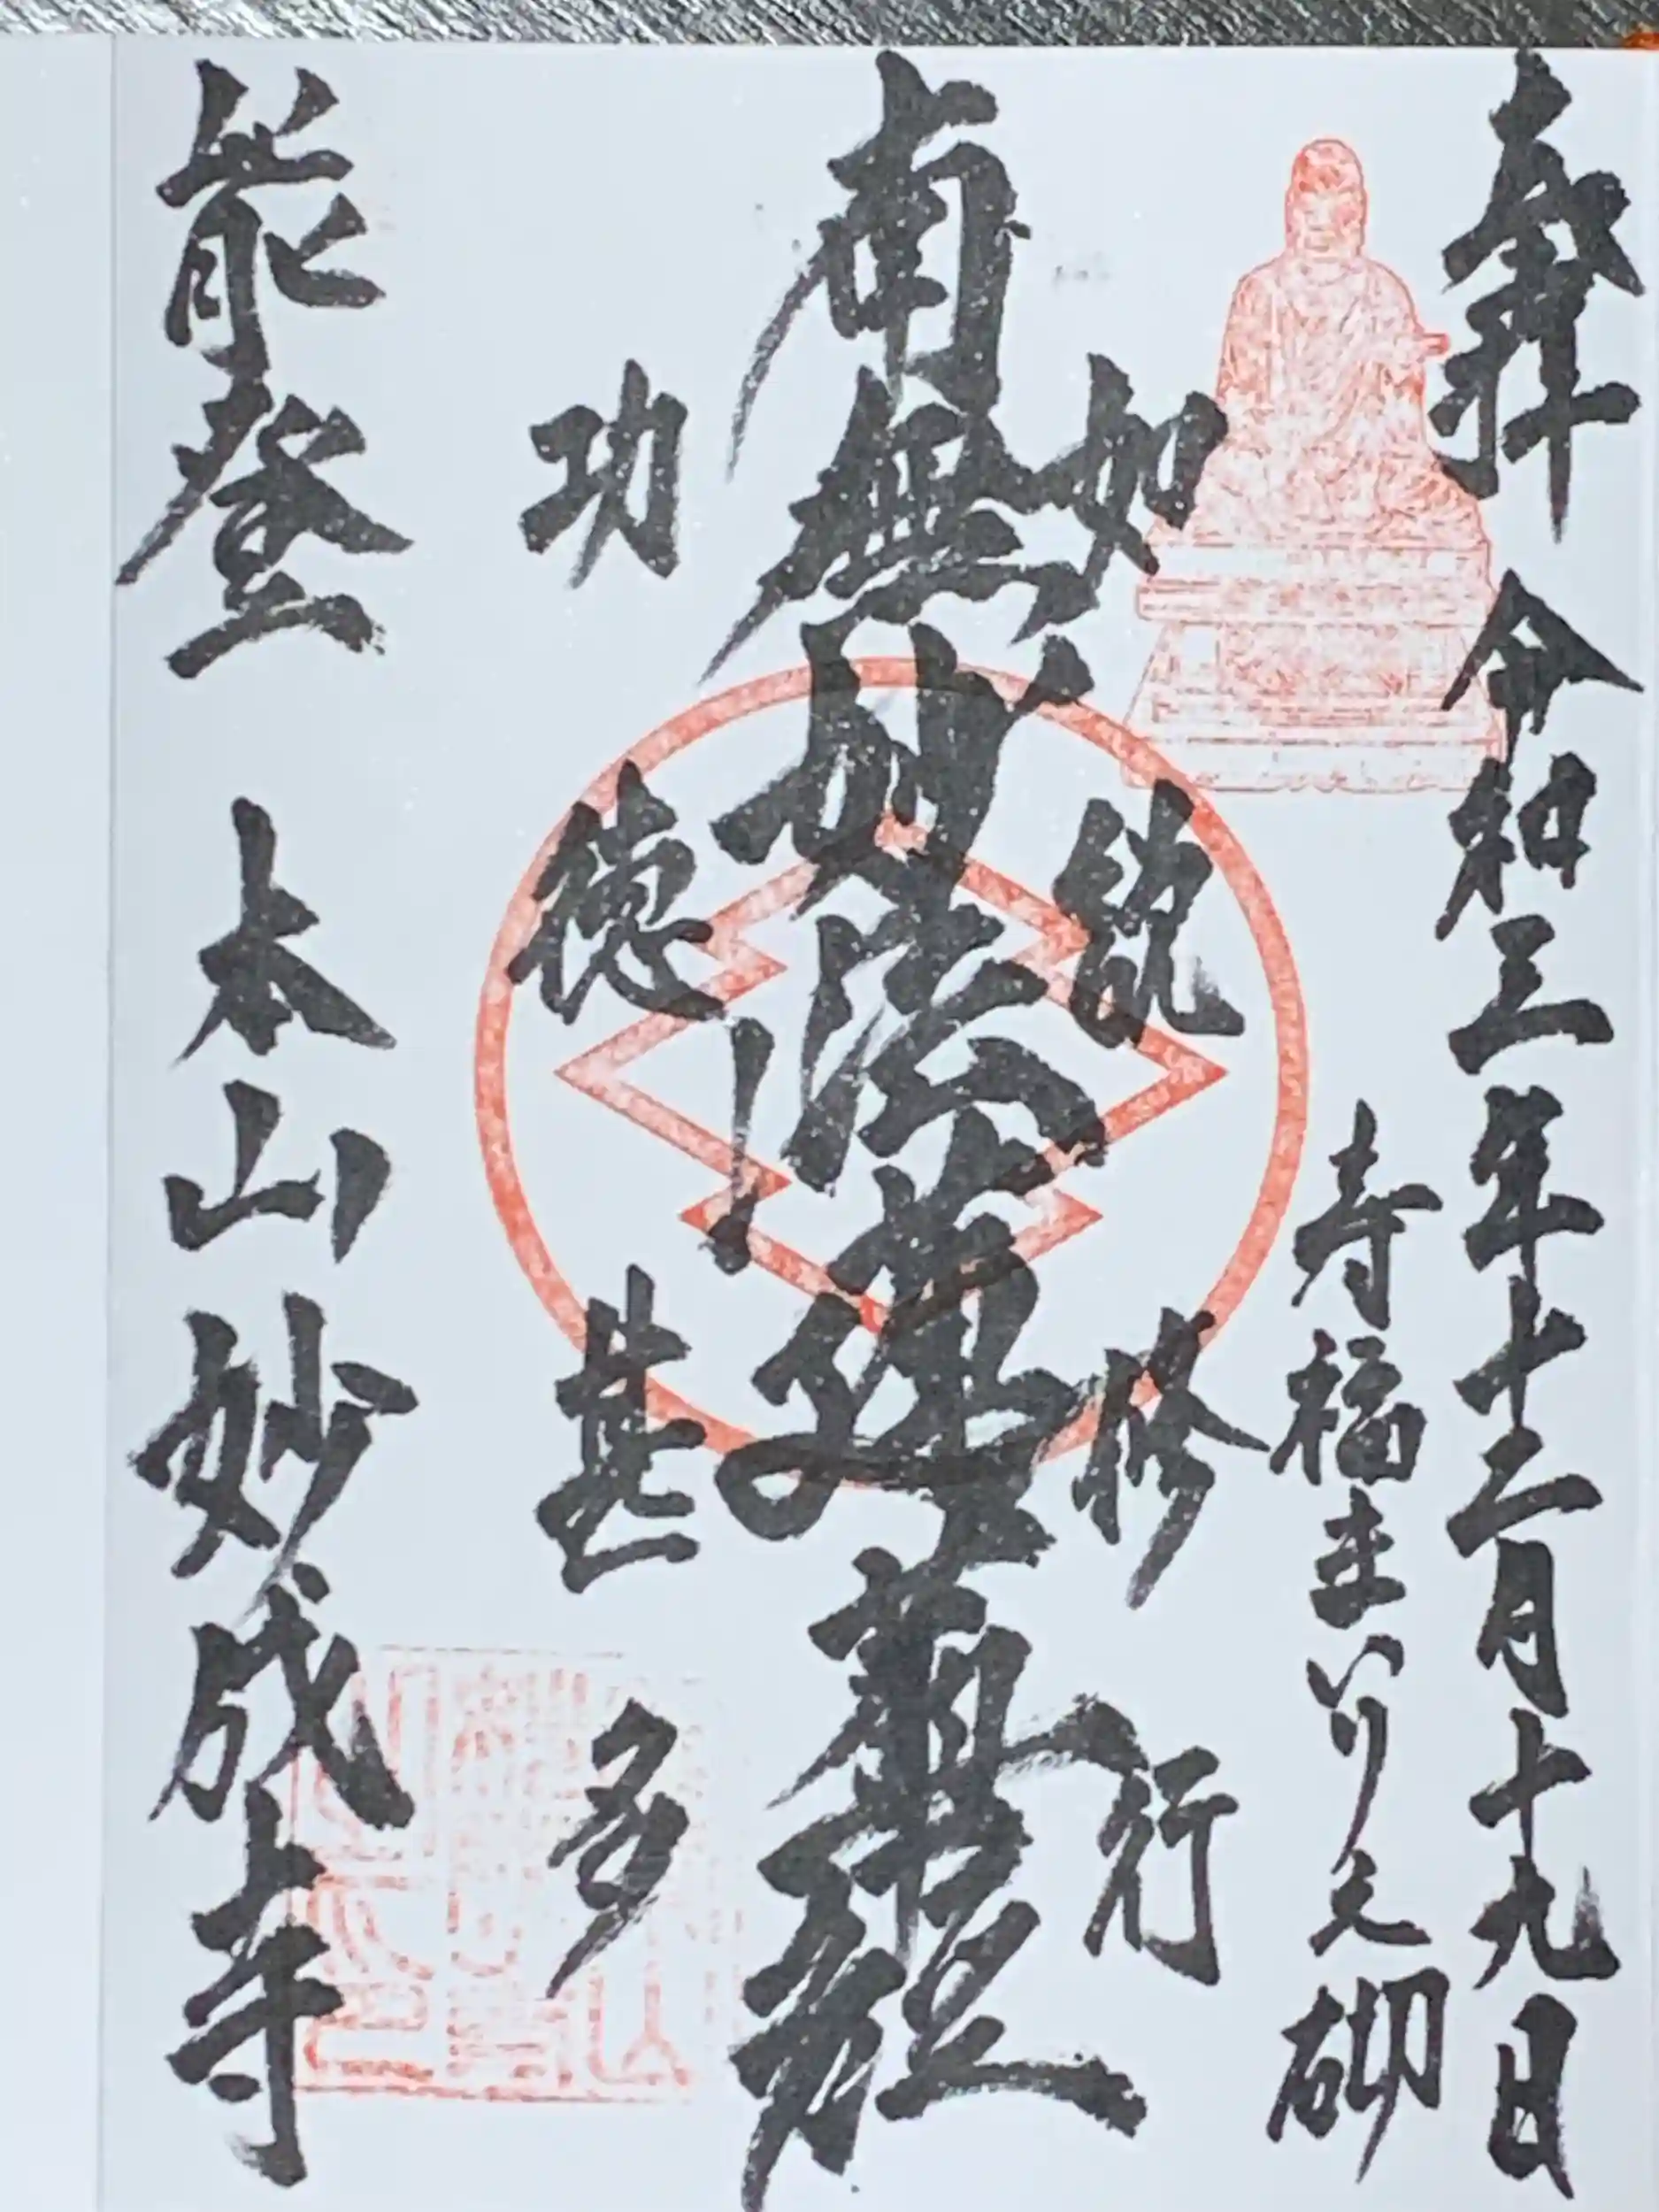 奉拝 令和三年十二月十九日
寿福まいり之砌
如説修行
南無妙法蓮華経
功徳甚多
能登 本山妙成寺